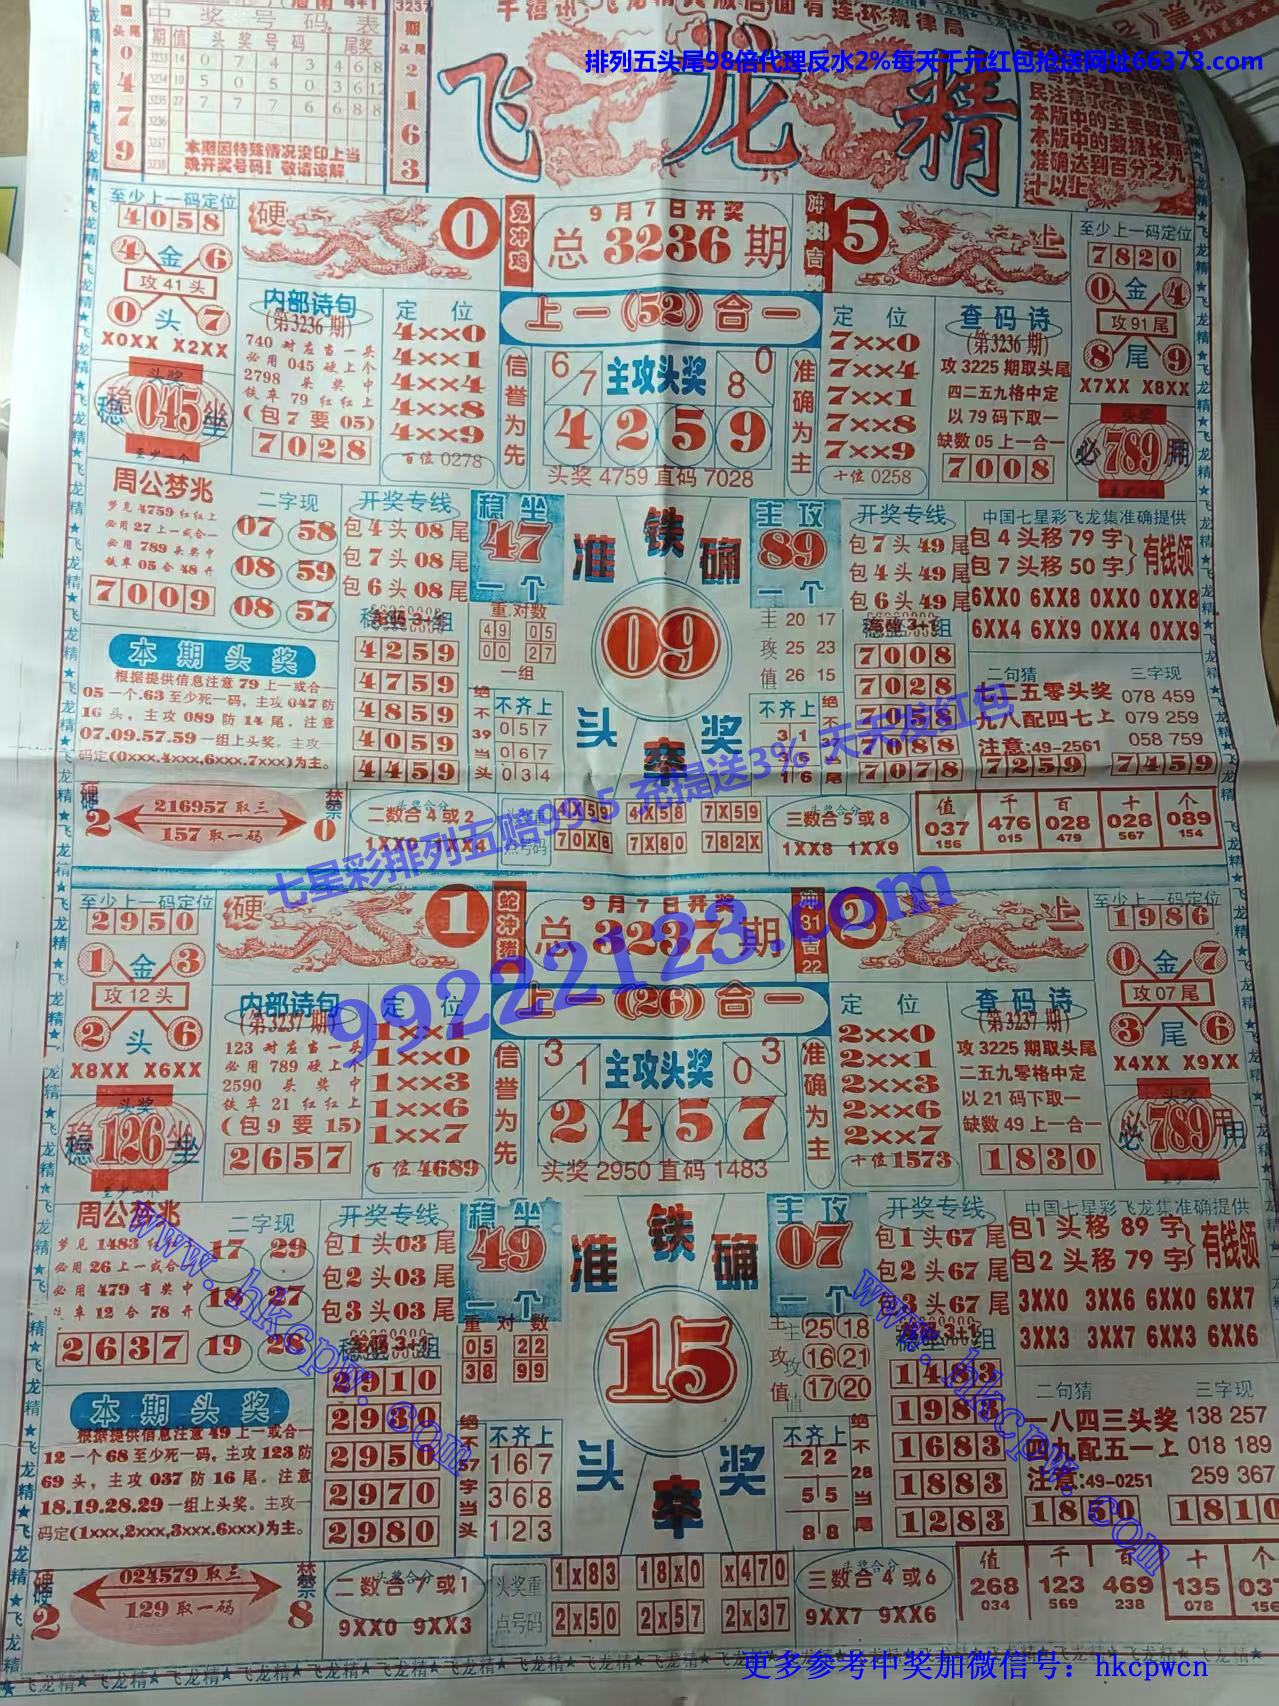 排列五头尾98倍代理反水2%每天千元红包抢送网址66373.com
飞龙精
中奖号码表
本期因特殊情况没印上当
晚开奖号码!敬请谅解
本版中的主要数据
本版中的数据长期
准确达到百分之九
十以上
至少上一码定位
4058
4 金 6
攻41头
0 头 7
X0XX X2XX
头奖
稳045坐
硬
0
兔冲鸡
9月7日开奖
总3236期
5
上
至少上一码定位
7820
0 金 4
攻91尾
8 尾 9
X7XX X8XX
头奖
必789用
内部诗句
(第3236期)
740 对应当一头
必用 045 硬上个
2798 头奖中
铁车 79 红红上
(包7要05)
7028
定位
4××0
4××1
4××4
4××8
4××9
百位0278
上一(52)合一
信誉为先
主攻头奖
6 7
0 8
4259
头奖4759直码7028
准确为主
定位
7××0
7××4
7××1
7××8
7××9
十位0258
查码诗
(第3236期)
攻3225期取头尾
四二五九格中定
以79码下取一
缺数05上一合一
7008
周公梦兆
梦见4759红红上
必用27上一或合一
必用789头奖中
铁车05合48开
7009
二字现
07 58
08 59
08 57
开奖专线
包4头08尾
包7头08尾
包6头08尾
稳坐
47
一个
铁
准确
09
头奖
主攻
89
一个
开奖专线
包7头49尾
包4头49尾
包6头49尾
中国七星彩飞龙集准确提供
包4头移79字
包7头移50字
有钱领
6XX0 6XX8 0XX0 0XX8
6XX4 6XX9 0XX4 0XX9
本期头奖
根据提供信息注意79上一或合一
05一个.63至少死一码,主攻047防
16头,主攻089防14尾。注意
07.09.57.59一组上头奖。主攻一
码定(0xxx.4xxx,6xxx,7xxx)为主。
4259
4759
4859
4059
4459
重对数
49 05
00 27
一组
绝不39当头
不齐上
057
067
034
主攻值
20 17
25 23
26 15
不齐上
7008
7028
7058
7088
7078
二句猜
九八配四七上
注意:49-2561
三字现
078 459
079 259
058 759
7259
7459
硬2
216957取三
157取一码
禁0
二数合4或2
1XX0 1XX4
4X58
7X59
70X8
7X80
782X
三数合5或8
1XX8 1XX9
值 千 百 十 个
037 476 028 028 089
156 015 479 567 154
七星彩排列五赔995 充提送3% 天天发红包
99222123.com
至少上一码定位
2950
1 金 3
攻12头
2 头 6
X8XX X6XX
头奖
稳126坐
硬
1
蛇冲猪
9月7日开奖
总3237期
冲31吉22
上
至少上一码定位
1986
0 金 7
攻07尾
3 尾 6
X4XX X9XX
头奖
必789用
内部诗句
(第3237期)
123 对应当一头
必用 789 硬上个
2590 头奖中
铁车 21 红红上
(包9要15)
2657
定位
1××1
1××0
1××3
1××6
1××7
百位4689
上一(26)合一
信誉为先
主攻头奖
3 1
3 0
2457
头奖2950直码1483
准确为主
定位
2××0
2××1
2××2
2××6
2××7
十位1573
查码诗
(第3237期)
攻3225期取头尾
二五九零格中定
以21码下取一
缺数49上一合一
1830
周公梦兆
必用26上一或合
必用479有奖中
2637
二字现
17 29
18 27
19 28
开奖专线
包1头03尾
包2头03尾
包3头03尾
稳坐
49
一个
铁
准确
15
头奖
主攻
07
一个
开奖专线
包1头67尾
包2头67尾
包3头67尾
中国七星彩飞龙集准确提供
包1头移89字
包2头移79字
有钱领
3XX0 3XX6 6XX0 6XX7
3XX3 3XX7 6XX3 6XX6
www.hkcpw.com
www.hkcpw.com
本期头奖
根据提供信息注意49上一或合一
12一个68至少死一码,主攻123防
69头,主攻037防16尾。注意
18.19.28.29一组上头奖。主攻一
码定(1xxx,2xxx,3xxx.6xxx)为主。
2910
2930
2950
2970
2980
重对数
05 22
38 99
绝不57字当头
不齐上
167
368
123
主攻值
25 18
16 21
17 20
不齐上
22
55
88
绝不28当尾
1483
1983
1683
1883
1283
二句猜
一八四三头奖
四九配五一上
注意:49-0251
三字现
138 257
018 189
259 367
1850
1810
硬2
024579取三
129取一码
禁8
9XX0 9XX3
头奖重点号码
1x83 18x0 x470
2x50 2x57 2x37
三数合4或6
9XX7 9XX6
值 千 百 十 个
268 123 469 135
034 569 238 078 156
更多参考中奖加微信号:hkcpwcn